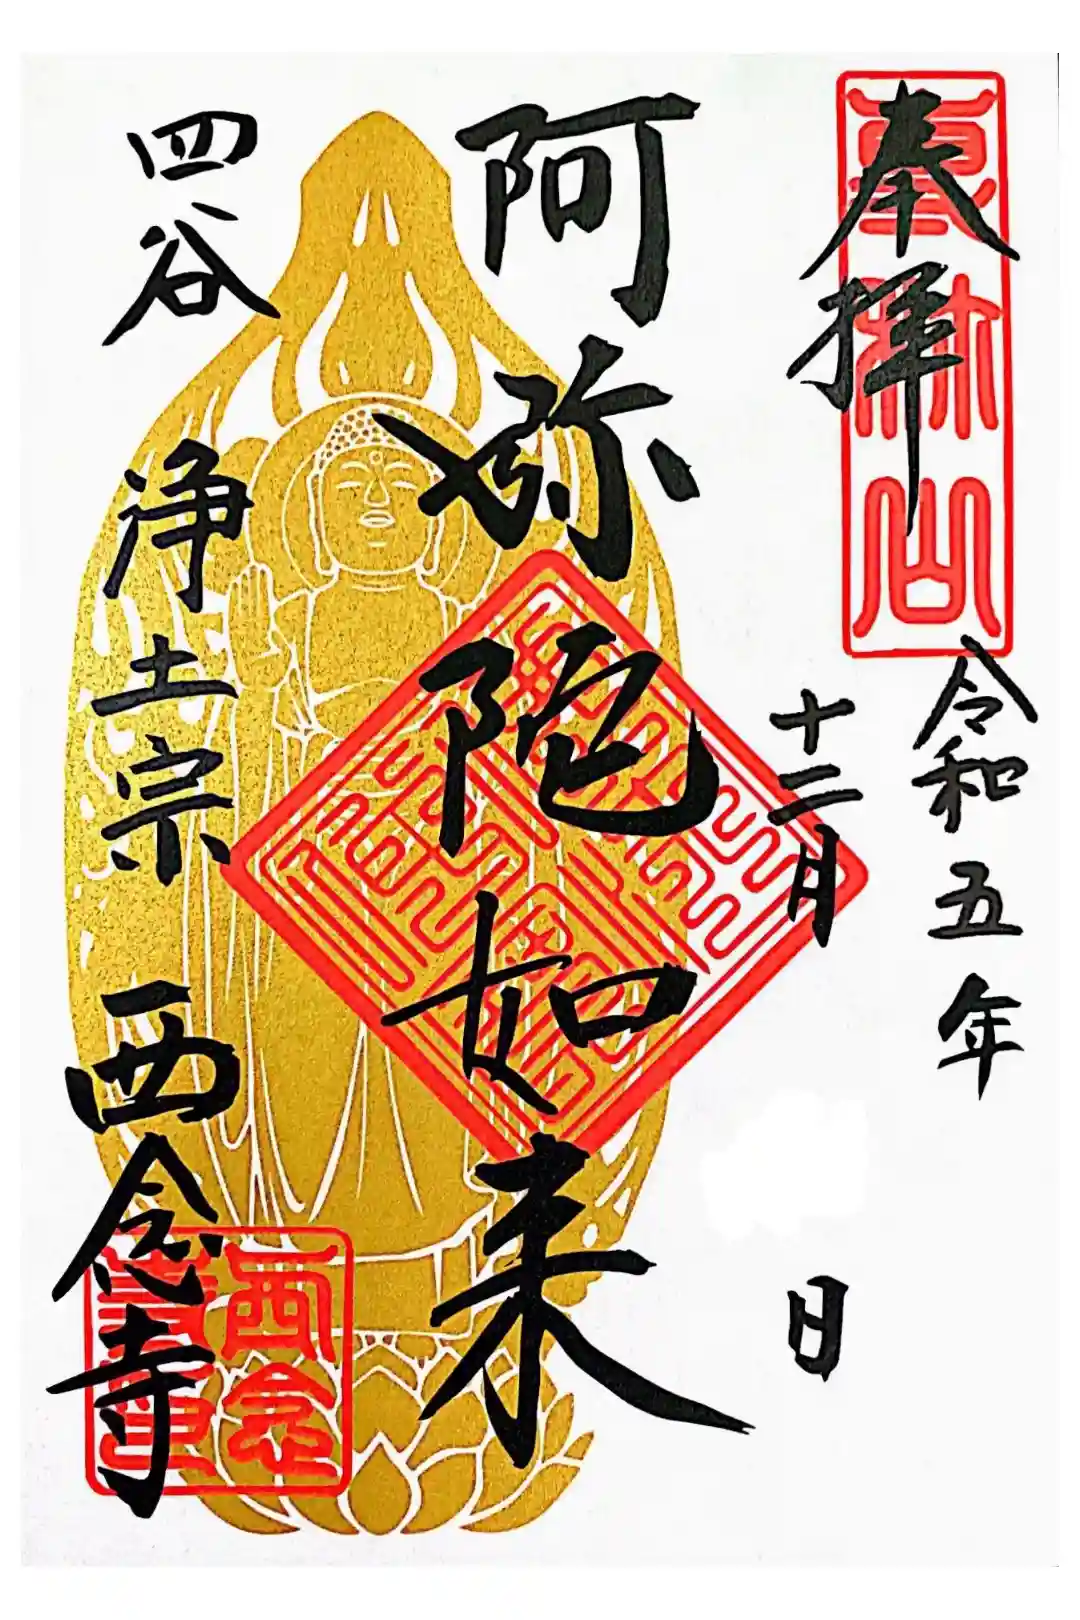 奉拝
専称山
令和五年
十二月 日
阿弥陀如来
四谷 浄土宗 西念寺
西念